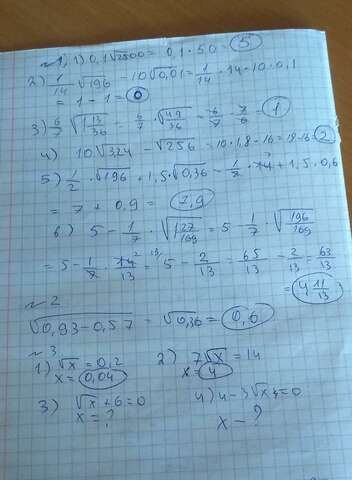 №1. 1) 0,1√2500 = 0,1·50 = 5
2) 1/14 √196 - 10√0,01 = 1/14 · 14 - 10·0,1
= 1 - 1 = 0
3) 6/7 √1 13/36 - 6/7 · √49/36 - 6/7 · 7/6 - 1
4) 10√324 - √256 = 10·1,8 - 16 = 18-16 = 2
5) 1/2 · √196 + 1,5·√0,36 - 1/2 · 14 + 1,5·0,6
= 7 + 0,9 = 7,9
6) 5 - 1/7 · √1 27/169 = 5 - 1/7 · √196/169
= 5 - 1/7 · 14/13 = 5 - 2/13 = 65/13 - 2/13 = 63/13
= 4 11/13
№2
√0,93-0,57 - √0,36 = 0,6
№3
1) √x = 0,2 2) 7√x = 14
x = 0,04 x = 4
3) √x + 6 = 0 4) 4 - 3√x = 0
x = ? x - ?